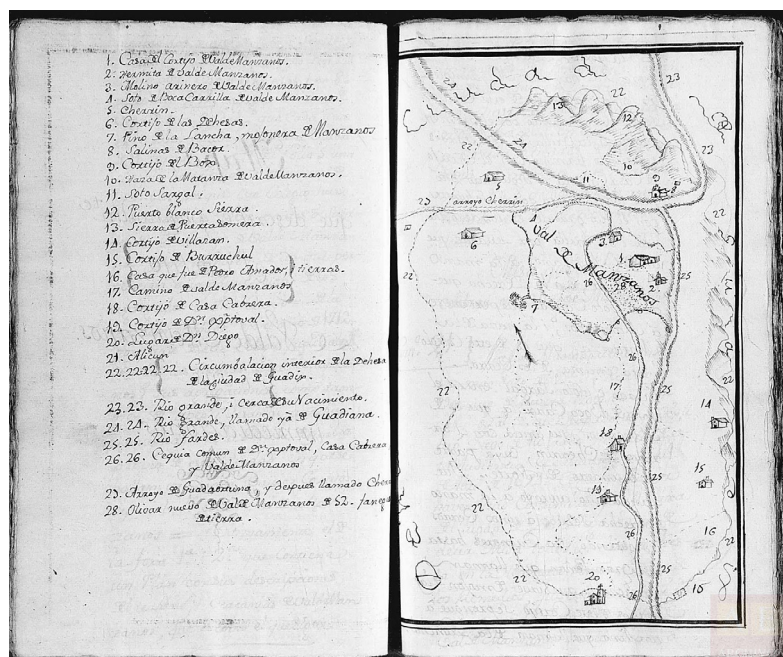 1. Casa del Cortijo de Valde Manzanos.
2. Hermita de Valde Manzanos.
3. Molino arinero de Valde Manzanos.
4. Soto de Boca Carrilla de Valde Manzanos.
5. Cherrin.
6. Cortijo de las Dehesas.
7. Pino de la Lancha, mojonera de Manzanos
8. Salinas de Bacor.
9. Cortijo del Box.
10. Haza de la Matanza de Valde Manzanos.
11. Soto Sargal.
12. Puerto blanco Sierra.
13. Sierra de
14. Cortijo de Villaraan.
15. Cortijo de Burruchul
16. Casa que fue de Pedro Amador, i tierras.
17. Camino de Valde Manzanos
18. Cortijo de Casa Cabrera.
19. Cortijo de Dn. Xptoval.
20. Lugar de Dn. Diego
21. Alicun
22.22.22.22. Circumbalacion interior de la Dehesa
de la ciudad de Guadix.
23.23. Rio grande, i cerca de su Nacimiento.
24.24. Rio grande, llamado ya de Guadiana.
25.25. Rio Fardes.
26.26. Cequia comun de Dn. Xptoval, Casa Cabrera
y Valde Manzanos
Arroyo de y despues llamado
28. Olivar nuevo de Valde Manzanos de 52.
de tierra.
23
22
13
12
22
24
10
23
22
5
11
9
8
23
arroyo Cherrin
22
6
4
3
Val de Manzanos
1
2
28
26
25
7
22
26
17
25
14
18
15
22
19
16
26
22
25
22
20
15